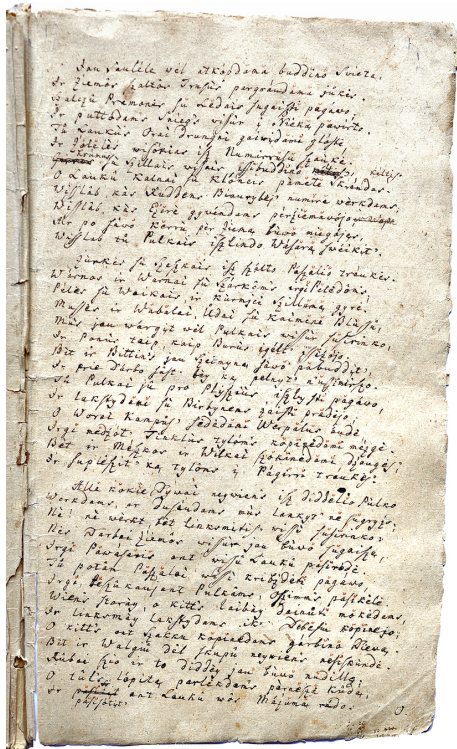 Jau Saulele wėl atkopdama buddino Swieta,
Ir Ziemôs ßaltôs Trusus pargraudama júkės.
Szalcziû Pramonės sù Leddais sugaißti pagawo,
Ir puttodams Sniegs wissur į Nieką pawirto.
Tů Laukus Orai drungni gaiwidami glostė,
Ir Žoleles wissokias iß Numirrusû ßaukė.
Krumus sù Szillais wissais issibuddino keltis;
O Laukû Kalnai sù Kloneis pamettė Skrandas.
Wißlab, kas Ruddens Biaurybėj' numirė werkdams,
Wißlab, kas Ežere gywendams peržiemawojo
Ar po sawo Kerru per Ziemą buwo miegojęs,
Wißlab tů Pulkais ißlindo Wasarą sweikįt'.
Żurkės sù Szeßkais iß ßalto Paßalio traukės.
Warnos ir Warnai sù Szarkoms irgi Pelėdoms,
Pelės sù Waikais ir Kurmei Szillumą gyrė.
Mussės ir Wabalai, Ůdai sù Kaimene Blussû,
Mus jau wargįt' wėl Pulkais wissur susirinko,
Ir Ponus taip, kaip Burus įgelt' ißsižojo.
Bet ir Bittins jau Szeimyną sawo pabuddįt',
Ir prie Darbo siųst bey ką pelnyt' n'užmirßo.
Tů Pulkai jû pro Plyßius ißlysti pagawo,
Ir lakstydami sù Birbynems žaisti pradėjo;
O Worai Kampůs' sėdėdami Werpalus audė
Irgi medžot' Tinklus tyloms kopinėdami mezgė.
Bet ir Meßkos ir Wilkai ßokinėdami džaugės,
Ir suplėßįt' ką tyloms į Pagirrį traukė.
Alle kokie Dywai, neywiens iß didzio Pulko
Werkdams, ar dusaudams mus lankyt' ne sugrįžo;
Nė! ne werkt, bet linksmįtis wissi susirinko:
Nės Darbai Ziemôs wissur jau buwo sugaißę,
Irgi Pawasaris ant wissû Laukû pasirodė.
Tů potam Paßalei wissi kribżdėt' pagawo,
Irgi beßukaujant Pulkams Ošims pasikėlė.
Wiens storay, o kitts laibay dainůt' mokėdams,
Ir linksmay lakstydams iki Debesû kopinėjo;
O kitts ant Szakkû kopinėdams garbino Diewą.
Bet ir Walgiû dėl skupû neywiens nesiskundė.
Rubai ßio ir to diddey jau buwo nudillę,
O tuls lopitą parlėkdams parneßė Kudą,
Ir ant Laukû wos Mażumą rado.
pasisotįt'
O